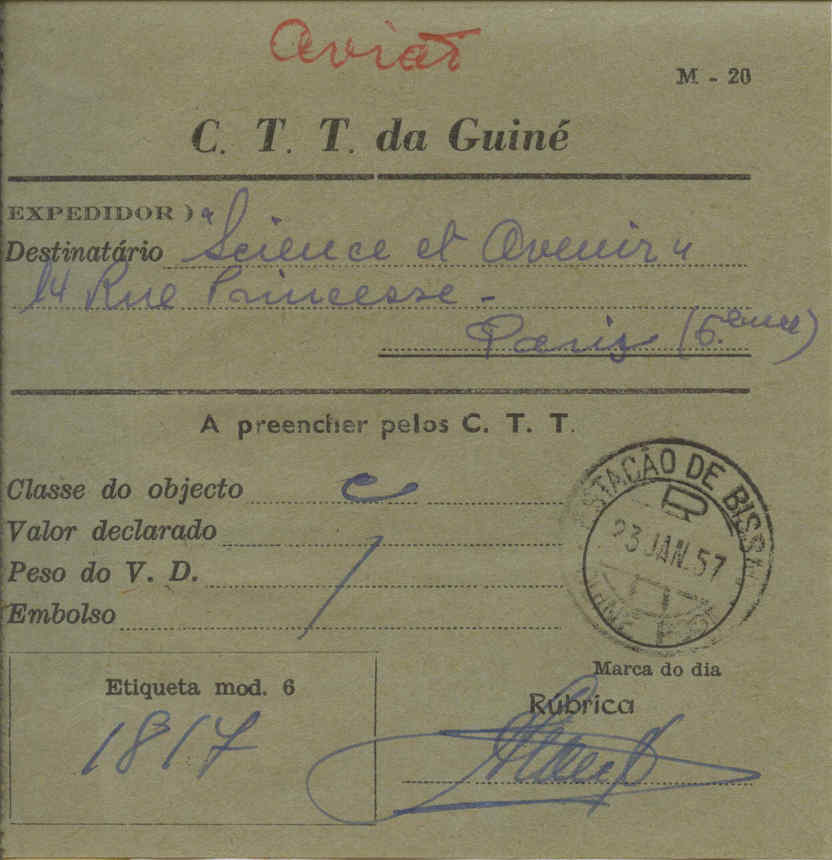 Aviāo
M - 20
C. T. T. da Guiné
EXPEDIDOR )
Destinatário "Science et Avenir"
14 Rue Princesse -
Paris (6.ème)
A preencher pelos C. T. T.
Classe do objecto c
Valor declarado
Peso do V. D.
Embolso
STACÃO DE BISSA
R
23 JAN. 57
Marca do dia
Etiqueta mod. 6
Rúbrica
1817